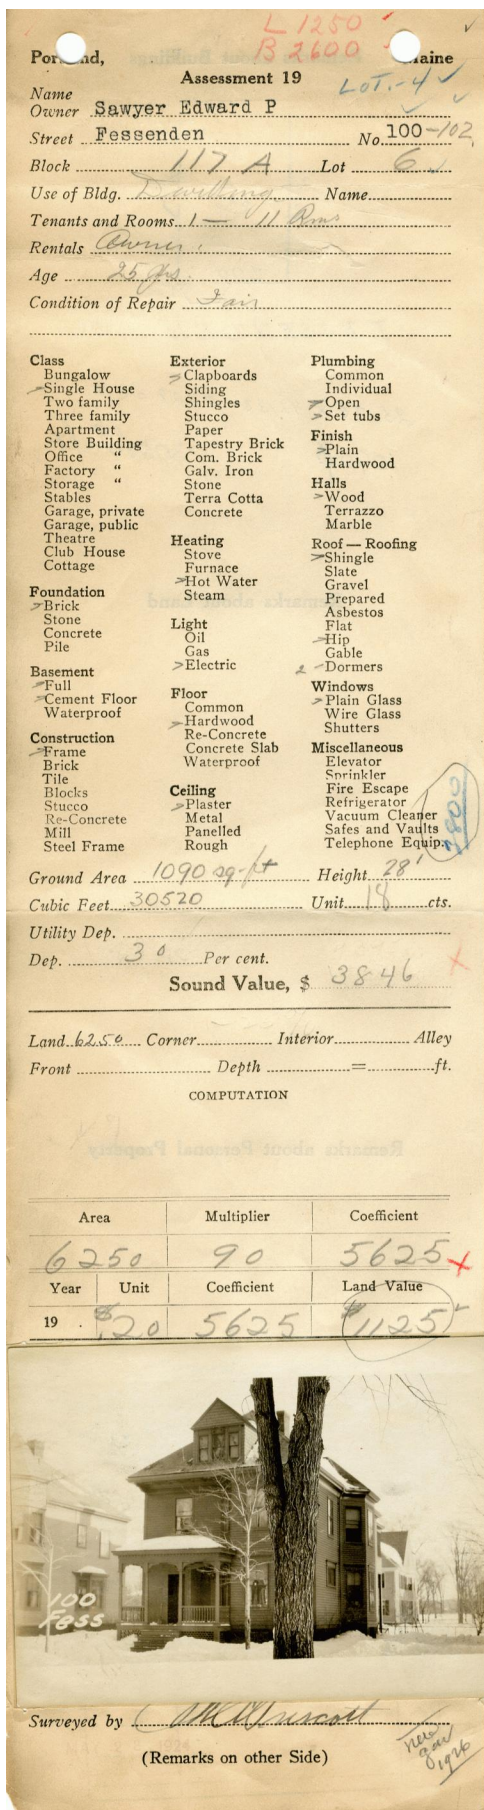 L 1250
B 2600
Portland, Maine
Assessment 19
LOT.-4
Name
Owner Sawyer Edward P
Street Fessenden No. 100-102
Block 117 A Lot 6
Use of Bldg. Dwelling Name
Tenants and Rooms 1 — 11 Rms
Rentals Owner.
Age 25 yrs.
Condition of Repair Fair
Class
Bungalow
Single House
Two family
Three family
Apartment
Store Building
Office "
Factory "
Storage "
Stables
Garage, private
Garage, public
Theatre
Club House
Cottage
Foundation
Brick
Stone
Concrete
Pile
Basement
Full
Cement Floor
Waterproof
Construction
Frame
Brick
Tile
Blocks
Stucco
Re-Concrete
Mill
Steel Frame
Exterior
Clapboards
Siding
Shingles
Stucco
Paper
Tapestry Brick
Com. Brick
Galv. Iron
Stone
Terra Cotta
Concrete
Heating
Stove
Furnace
Hot Water
Steam
Light
Oil
Gas
Electric
Floor
Common
Hardwood
Re-Concrete
Concrete Slab
Waterproof
Ceiling
Plaster
Metal
Panelled
Rough
Plumbing
Common
Individual
Open
Set tubs
Finish
Plain
Hardwood
Halls
Wood
Terrazzo
Marble
Roof — Roofing
Shingle
Slate
Gravel
Prepared
Asbestos
Flat
Hip
Gable
2 - Dormers
Windows
Plain Glass
Wire Glass
Shutters
Miscellaneous
Elevator
Sprinkler
Fire Escape
Refrigerator
Vacuum Cleaner
Safes and Vaults
Telephone Equip.
Ground Area 1090 sq-ft Height 28'
Cubic Feet 30520 Unit 18 cts.
Utility Dep.
Dep. 30 Per cent.
Sound Value, $ 3846
Land 6250 Corner Interior Alley
Front Depth = ft.
COMPUTATION
Remarks about Personal Property
Area Multiplier Coefficient
6250 90 5625
Year Unit Coefficient Land Value
19 $.20 5625 $1125
100
Fess
Surveyed by
(Remarks on other Side)
New
gar
1926